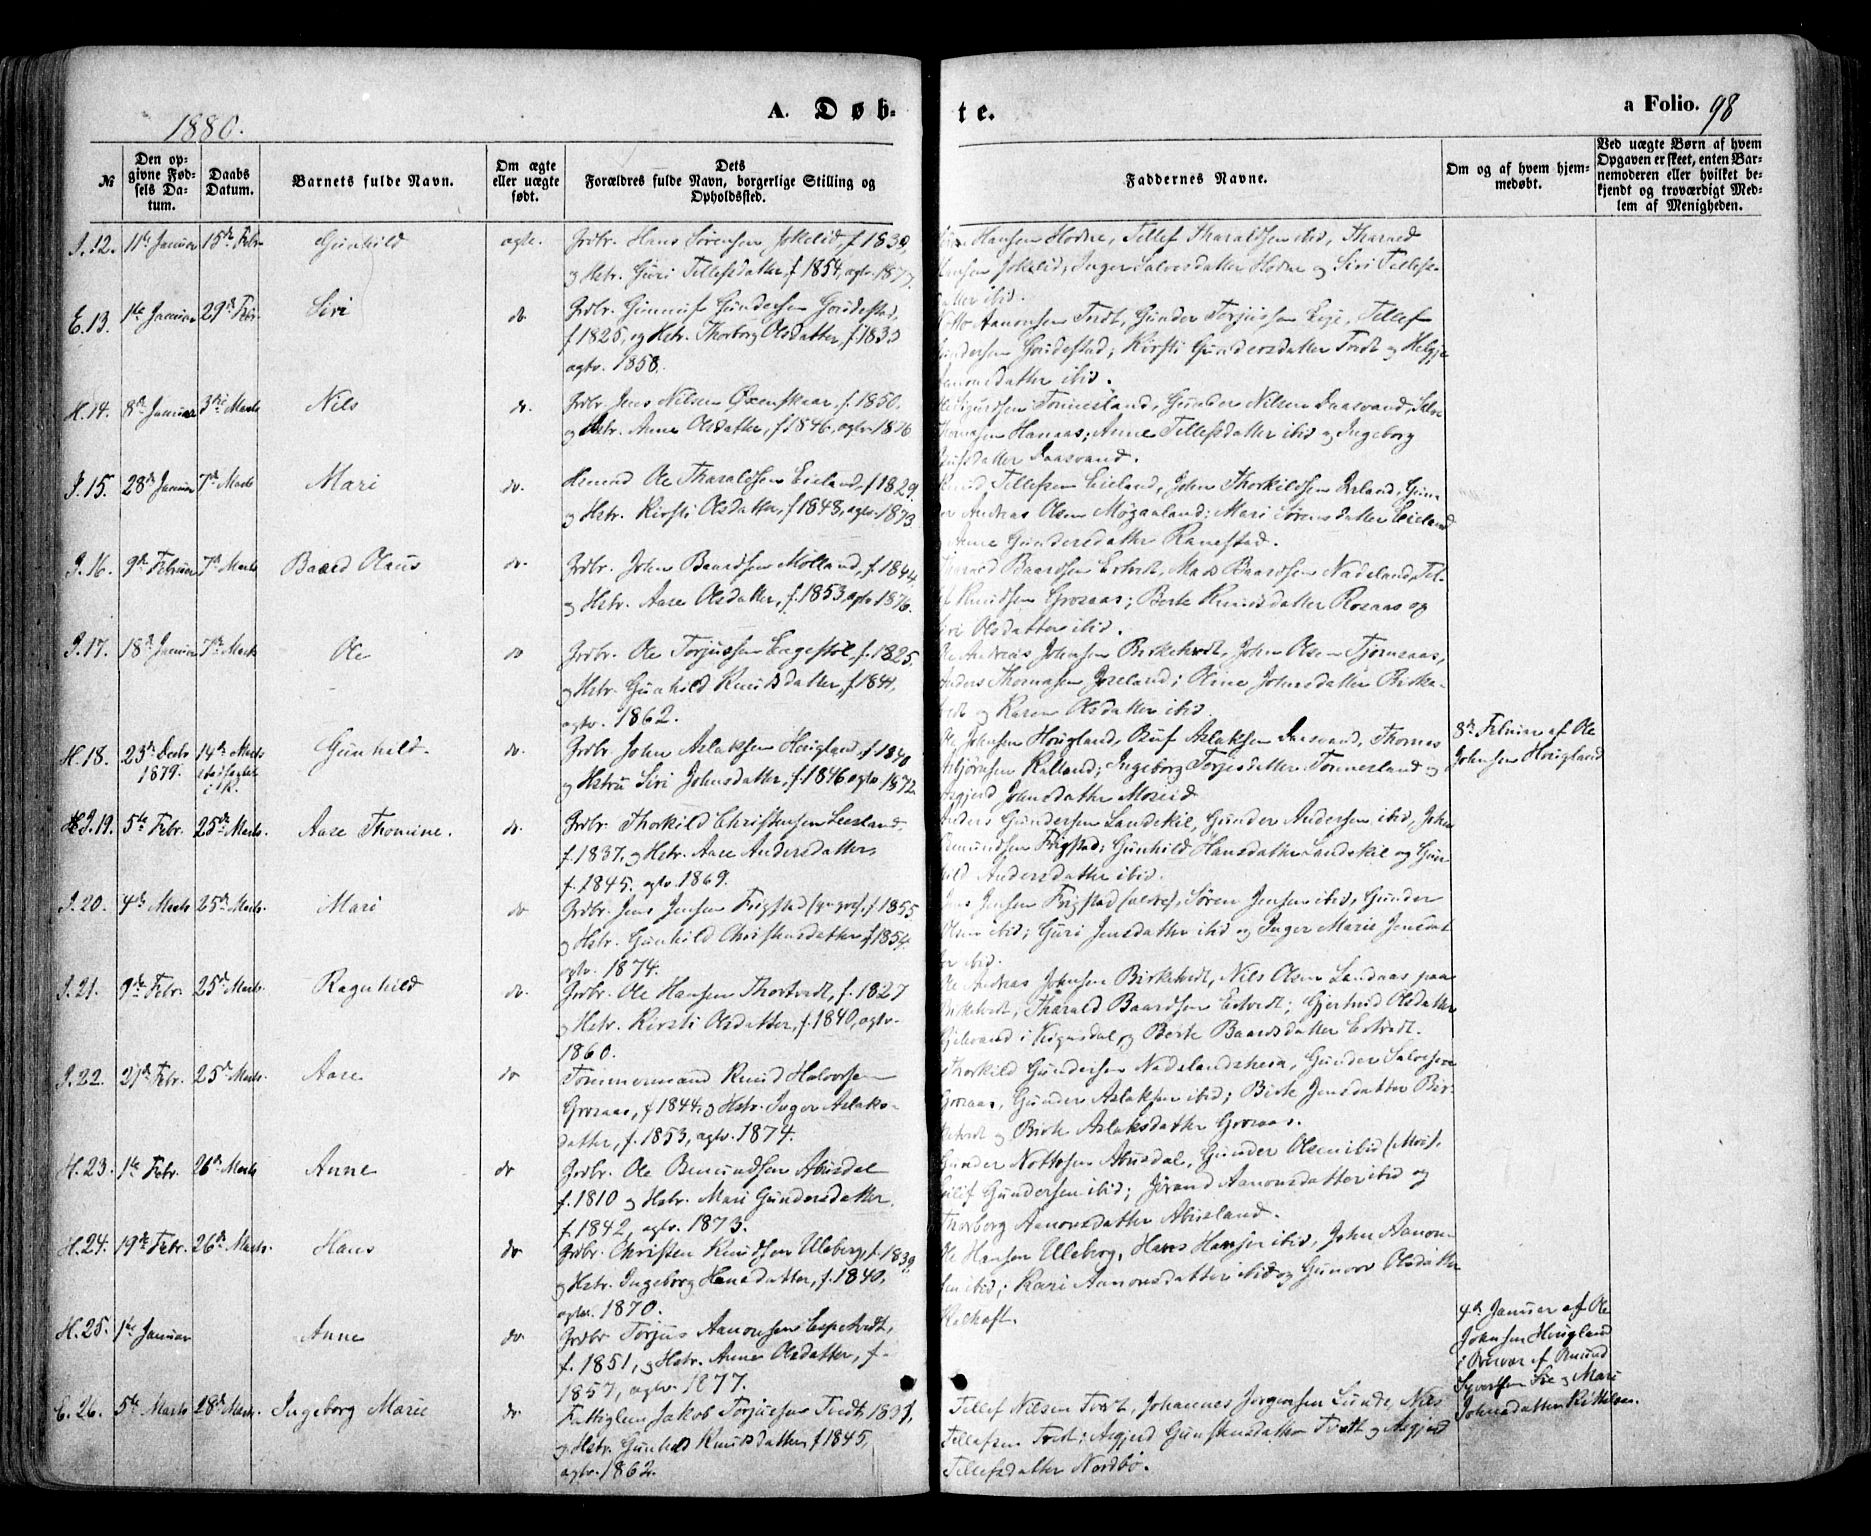 1880.
A. Døb-
te.
a Folio. 98
№
Den opgivne Fødsels Datum.
Daabs Datum.
Barnets fulde Navn.
Om ægte eller uægte født.
Dets Forældres fulde Navn, borgerlige Stilling og Opholdssted.
Faddernes Navne.
Om og af hvem hjemmedøbt.
Ved uægte Børn af hvem Opgaven er skeet, enten Barnemoderen eller hvilket bekjendt og troværdigt Medlem af Menigheden.
I. 12. 11te Januar 15de Febr Gunhild ægte. Grdbr. Hans Sørensen Jokelid, f. 1830,
og Hstr. Guri Tellefsdatter, f. 1854, ægtv. 1877.
Hansen Hodne, Tellef Tharaldsen ibid, Tharald
Jokelid, Inger Salvesdatter Hodne og Siri Tellefs-
datter ibid.
E. 13. 1te Januar 29de Febr. Siri do. Grdbr. Gundersen
f. 1825, og Hstr. Thorborg Olsdatter, f. 1833
ægtv. 1858.
Aanonsen Tvedt, Gunder Torjussen Eeje, Tellef
Gundersen Kirsti Gundersdatter Tvedt og Helgje
Aanonsdatter ibid.
H. 14. 8de Januar 3die Marts Nils do. Grdbr. Jens Nilsen Øxenskaar, f. 1850.
og Hstr. Anne Olsdatter, f. 1846, ægtv. 1876
Sigurdsen Tonnesland, Gunder Nilsen Daasvand,
Thomasen Hanaas; Anne Tellefsdatter ibid og Ingeborg
datter Daasvand.
I. 15. 28de Januar 7de Marts Mari do. Ole Tharaldsen Eieland, f. 1829.
og Hstr. Kirsti Olsdatter, f. 1848, ægtv. 1873
Knud Tellefsen Eieland, John Thorkildsen Gun-
Andreas Olsen Møgaaland; Mari Sørensdatter Eieland
Anne Gundersdatter Ranestad.
I. 16. 9de Februar 7de Marts Baard Olaus do. Grdbr. John Baardsen Mølland, f. 1844,
og Hstr. Aase Olsdatter, f. 1853, ægtv. 1876.
Tharald Baardsen Eetvedt, Mads Baardsen Nadeland, Tel-
Knudsen Grosaas; Berte Knudsdatter Rosaas og
Siri Olsdatter ibid.
I. 17. 18de Januar 7de Marts Ole do Grdbr. Ole Torjussen Eegestøl, f. 1825,
og Hstr. Gunhild Knudsdatter, f. 1841,
ægtv. 1862.
Ole Andreas Johnsen Birketvedt, John Olsen Tjomsaas,
Anders Thomasen Joreland; Oline Johnsdatter Birke-
tvedt og Karen Olsdatter ibid.
H. 18. 23de Decbr 1879. 14de Marts stadfæstet i K. Gunhild do. Grdbr. John Aslaksen Hougland, f. 1840
og Hstru Siri Johnsdatter, f. 1846 ægtv. 1872.
Ole Johnsen Hougland, Aslaksen Daasvand, Thomas
Asbjørnsen Kalland; Ingeborg Torjesdatter Tonnesland og
Asgjerd Johnsdatter Moseid
8de Februar af Ole
Johnsen Hougland
I. 19. 5te Febr. 25de Marts. Aase Thomine. do. Grdbr. Thorkild Christensen Leesland,
f. 1837, og Hstr. Aase Andersdatter,
f. 1845. ægtv. 1869.
Anders Gundersen Landskil, Gunder Andersen ibid, John
Omundsen Frigstad; Gunhild Hansdatter Landskil og Gun-
hild Andersdatter ibid.
I. 20. 4de Marts 25de Marts. Mari do Grdbr. Jens Jensen Frigstad (yngre), f. 1855
og Hstr. Gunhild Christensdatter, f. 1854,
ægtv. 1874.
Jens Jensen Frigstad (ældre), Søren Jensen ibid, Gunder
Olsen ibid; Guri Jensdatter ibid og Inger Marie Jensdat-
ter ibid.
I. 21. 9de Febr. 25de Marts Ragnhild do. Grdbr. Ole Hansen Thortvedt, f. 1827
og Hstr. Kirsti Olsdatter, f. 1840, ægtv.
1860.
Ole Andreas Johnsen Birketvedt, Nils Olsen Landaas paa
Birketvedt, Tharald Baardsen Eetvedt; Gjertrud Olsdatter
i og Berte Baardsdatter Eetvedt.
I. 22. 21de Febr. 25de Marts. Aase do Tømmermand Knud Halvorsen
Grosaas, f. 1844, og Hstr. Inger Aslaks-
datter, f. 1853, ægtv. 1874.
Thorkild Gundersen Nadelandsheia, Gunder Salvesen
Grosaas, Gunder Aslaksen ibid; Berte Jensdatter Bir-
ketvedt og Birte Aslaksdatter Grosaas.
H. 23. 1te Febr. 26de Marts Anne do Grdbr. Ole Omundsen Abusdal
f. 1810 og Hstr. Mari Gundersdatter,
f. 1842, ægtv. 1873.
Gunder Nottosen Abusdal, Gunder Olsen ibid (Moi),
Gundersen ibid; Jørand Aanonsdatter ibid og
Thorborg Aanonsdatter Abusland.
H. 24. 19de Febr. 26de Marts. Hans do Grdbr. Christen Knudsen Uleberg, f. 1839,
og Hstr. Ingeborg Hansdatter, f. 1840,
ægtv. 1870.
Ole Hansen Uleberg, Hans Hansen ibid, John Aanon-
sen ibid; Kari Aanonsdatter ibid og Gunvor Olsdatter
H. 25. 1te Januar Anne do Grdbr Torjus Aanonsen Espetvedt,
f. 1851, og Hstr. Anne Olsdatter, f.
1857, ægtv. 1877.
4de Januar af Ole
Johnsen Hougland
i Overvær af
og Mari
Johnsdatter
E. 26. 5te Marts 28de Marts. Ingeborg Marie do Fattiglem Jakob Torjussen Tvedt, 1837,
og Hstr. Gunhild Knudsdatter, f. 1845,
ægtv. 1862.
Tellef Nilsen Tvedt, Johannes Jørgensen Lunde, Nils
Tellefsen Tvedt; Asgjerd Tvedt og Asgjerd
Tellefsdatter Nordbø.